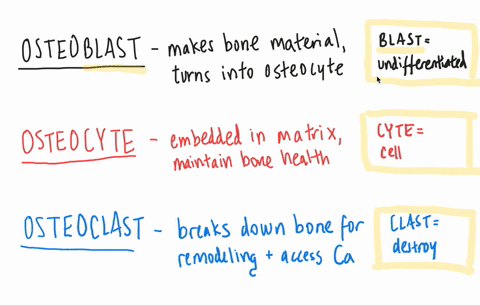 OSTEOBLAST - makes bone material,
turns into osteocyte
BLAST =
undifferentiated
OSTEOCYTE - embedded in matrix,
maintain bone health
CYTE =
cell
OSTEOCLAST - breaks down bone for
remodeling + access Ca
CLAST =
destroy